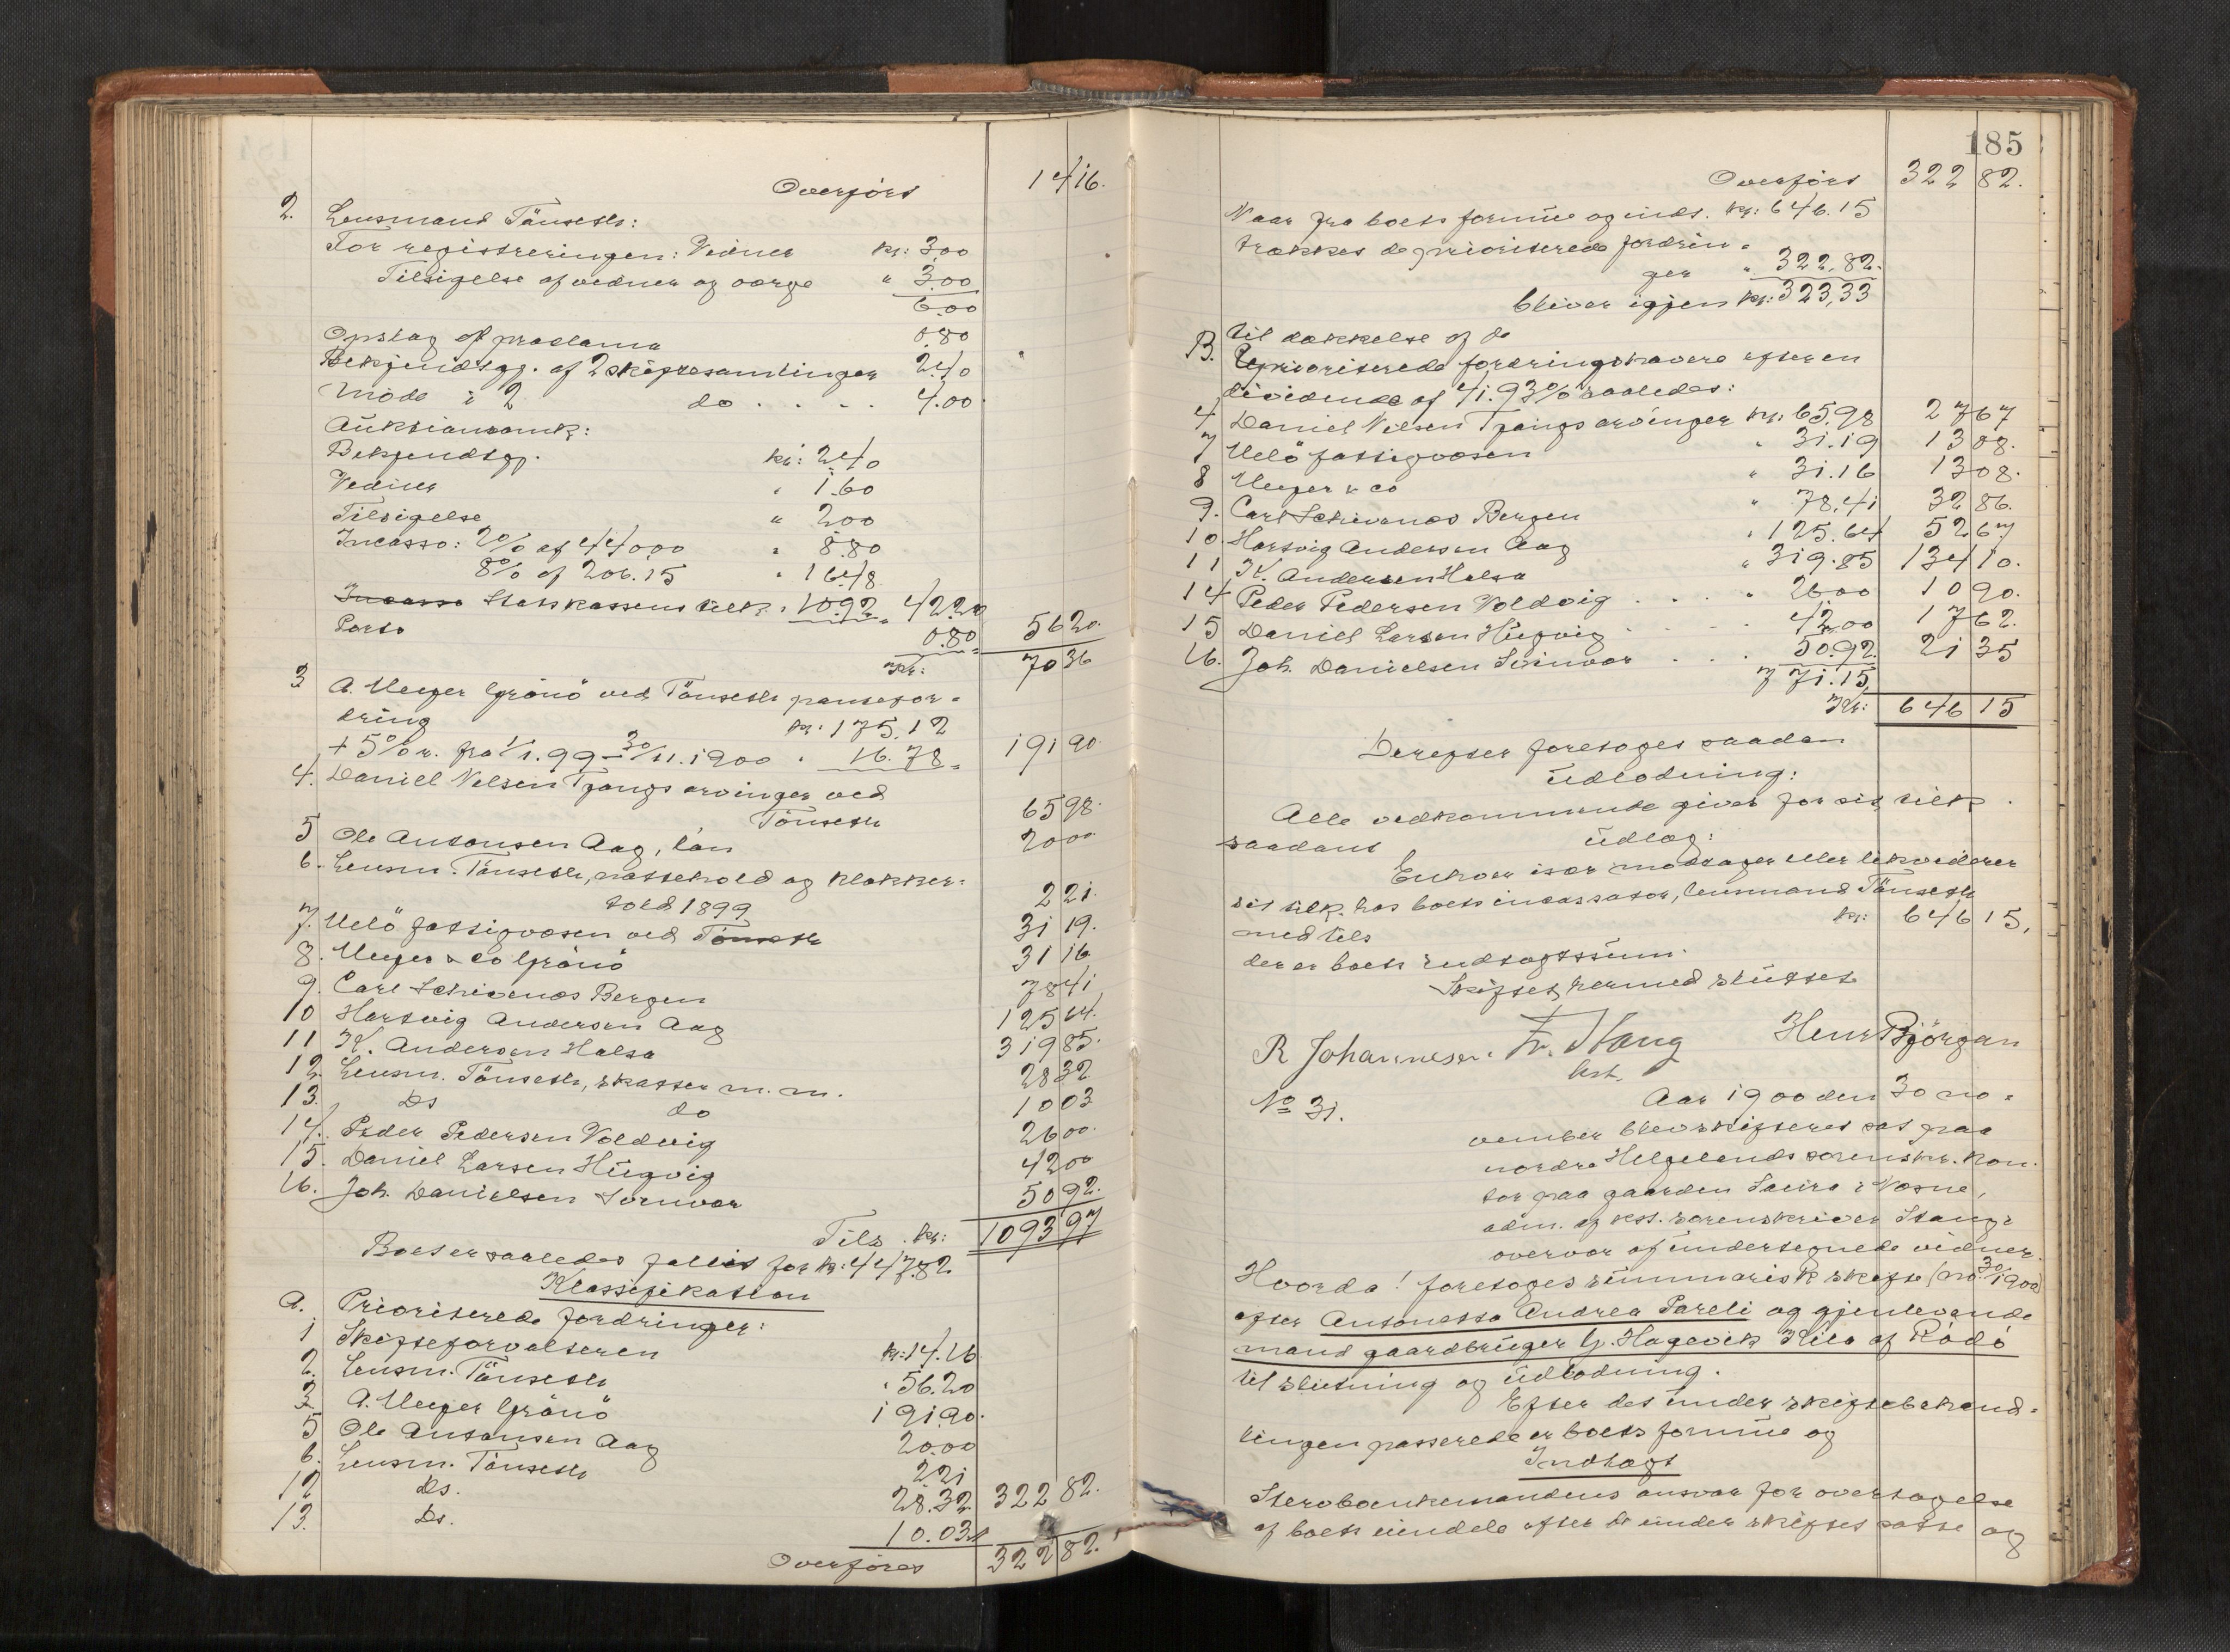 Overført 14 16.
2. Lensmand Tönseth:
For registreringen: Vidner kr: 3,00
Tilsigelse af vidner og værge " 3.00
6.00
Opslag af proclama 0.80
Bekjendtgj. af 2 skiftesamlinger 2.40
Møde i 2 do . . . . 4.00
Auktionsomk:
Bekjendtgj. kr: 2.40
Vidner " 1.60
Tilsigelse " 2.00
Incasso: 2% af 440.00 " 8.80
8% af 206.15 " 16.48
Incasso Statskassens tilk. " 10.92 " 42.20
Porto 0.80 56 20.
Kr: 70 36
3 A. Meyer Grönö ved Tönseth pantefor-
dring kr: 175,12
+ 5% r. fra 1/1. 99 - 30/11. 1900 " 16.78 191 90.
4. Daniel Nilsen Tjongs arvinger ved
Tönseth 65 98.
5 Ole Antonsen Aag, lån 20 00
6. Lensm. Tönseth, nattehold og klokker-
told 1899 2 21.
7. Melö fattigvæsen ved Tönseth 31 19.
8. Meyer & Co Grönö 31 16
9. Carl Schivenæs Bergen 78 41
10 Hartvig Andersen Aag 125 64.
11 K. Andersen Halsa 319 85.
12. Lensm. Tönseth, skatter m. m. 28 32
13. Ds do 10 03
14. Peder Pedersen Voldvig 26 00.
15. Daniel Larsen Hugvig 42 00
16. Joh. Danielsen Sörnvær 50 92.
Tils. kr: 1093 97
Boet er saaledes fallit for kr: 447.82.
Klassifikation
A. Prioriterede fordringer:
1 Skifteforvalteren kr: 14.16
2. Lensm. Tönseth " 56.20
3 A. Meyer Grönö 191.90.
5 Ole Antonsen Aag 20.00
6. Lensm. Tönseth 2.21
12 Ds. 28.32 322 82.
13. Ds. 10.03
Overføres 322 82.
185
Overført 322 82.
Naar fra boets formue og indt. kr: 646.15
trækkes de prioriterede fordrin-
ger " 322,82.
bliver igjen kr: 323,33
til dækkelse af de
B. Uprioriterede fordringshavere efter en
dividende af 41.93% saaledes:
4 Daniel Nilsen Tjongs arvinger kr: 65.98 27 67
7 Melö fattigvæsen " 31.19 13 08.
8 Meyer & Co " 31.16 13 08.
9. Carl Schivenæs Bergen " 78,41 32 86.
10. Hartvig Andersen Aag " 125.64 52 67
11 K. Andersen Halsa " 319.85 134 10.
14 Peder Pedersen Voldvig . . . . " 26.00 10 90.
15 Daniel Larsen Hugvig . . . . . 42.00 17 62.
16. Joh. Danielsen Sörnvær . . . 50.92. 21 35
771.15,
Kr: 646 15
Derefter foretoges saadan
udlodning:
Alle vedkommende gives for sit tilk.
saadant udlæg:
Enhver især modtager eller likviderer
sit tilk. hos boets incassator, lensmand Tönseth
med tils kr: 646 15,
der er boets indtægtssum.
Skiftet hermed sluttet
R Johannesen. Fr. Stang Henr Bjørgan
kst.
No 31. Aar 1900 den 30 no-
vember blev skifteret sat paa
nordre Helgelands sorenskr. kon-
tor paa gaarden Saura i Næsne,
adm. af kst. sorenskriver Stang i
overvær af undertegnede vidner.
Hvorda! foretoges summarisk skifte (no. 30/1900)
efter Antonetta Andrea Pareli og gjenlevende
mand gaardbruger G. Hagevik Kila af Rødø
til slutning og udlodning.
Efter det under skiftebehand-
lingen passerede er boets formue og
Indtægt
Stervboenkemandens ansvar for overtagelse
af boets eiendele efter de under skiftet satte og